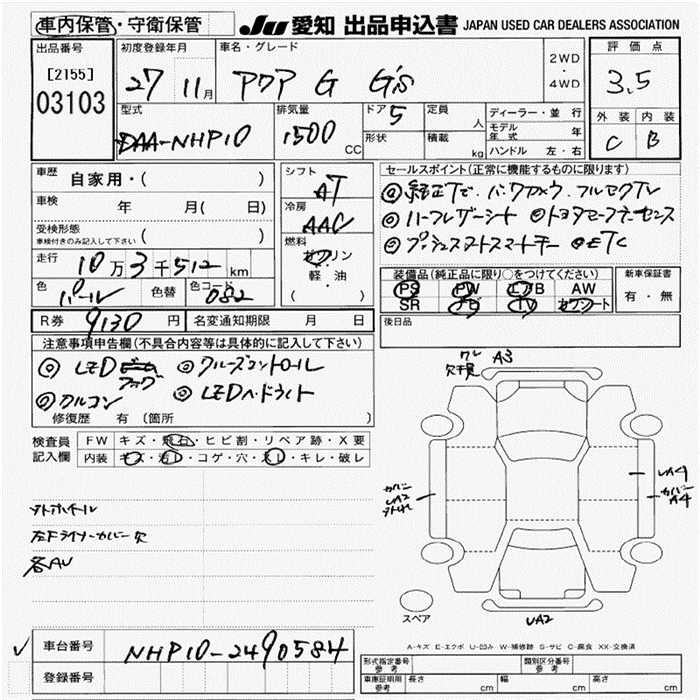 車内保管・守衛保管
JU 愛知 出品申込書 JAPAN USED CAR DEALERS ASSOCIATION
出品番号
[2155]
03103
初度登録年月
27 11月
車名・グレード
アクア G G's
2WD
・
4WD
評価点
3.5
外装 内装
C B
型式
DAA-NHP10
排気量
1500 CC
ドア 5
形状
定員 人
積載 kg
ディーラー・並行
モデル年式 年
ハンドル 左・右
車歴
自家用・( )
車検 年 月( 日)
受検形態
車検付きのみ記入して下さい ( )
走行 10万3千512km
色 パール 色替 色コード 082
シフト
AT
冷房
AAC
燃料
ガソリン
軽・油
( )
セールスポイント(正常に機能するものに限ります)
◎純正ナビ・バックカメラ・フルセグTV
◎ハーフレザーシート ◎トヨタセーフティーセンス
◎プッシュスタートスマートキー ◎ETC
装備品(純正品に限り○をつけてください)
PS PW エアB AW
SR ナビ TV カワシート
新車保証書
有・無
後日品
R券 9130円 名変通知期限 月 日
注意事項申告欄(不具合内容等は具体的に記入して下さい)
◎LEDフォグ ◎クルーズコントロール
◎アルコン ◎LEDヘッドライト
修復歴 有(箇所 )
検査員
記入欄
FW キズ・飛石・ヒビ割・リペア跡・X要
内装 キズ・汚レ・コゲ・穴・スレ・キレ・破レ
左Fライナーカバー欠
各AU
A3
カバー
UA2
UA4
カバー
A4
UA2
スペア
A-キズ E-エクボ U-凹み W-補修跡 S-サビ C-腐食 XX-交換済
車台番号 NHP10-2490584
登録番号
形式指定番号
参考
類別区分番号
参考
車庫証明用
参考
長さ cm 幅 cm 高さ cm